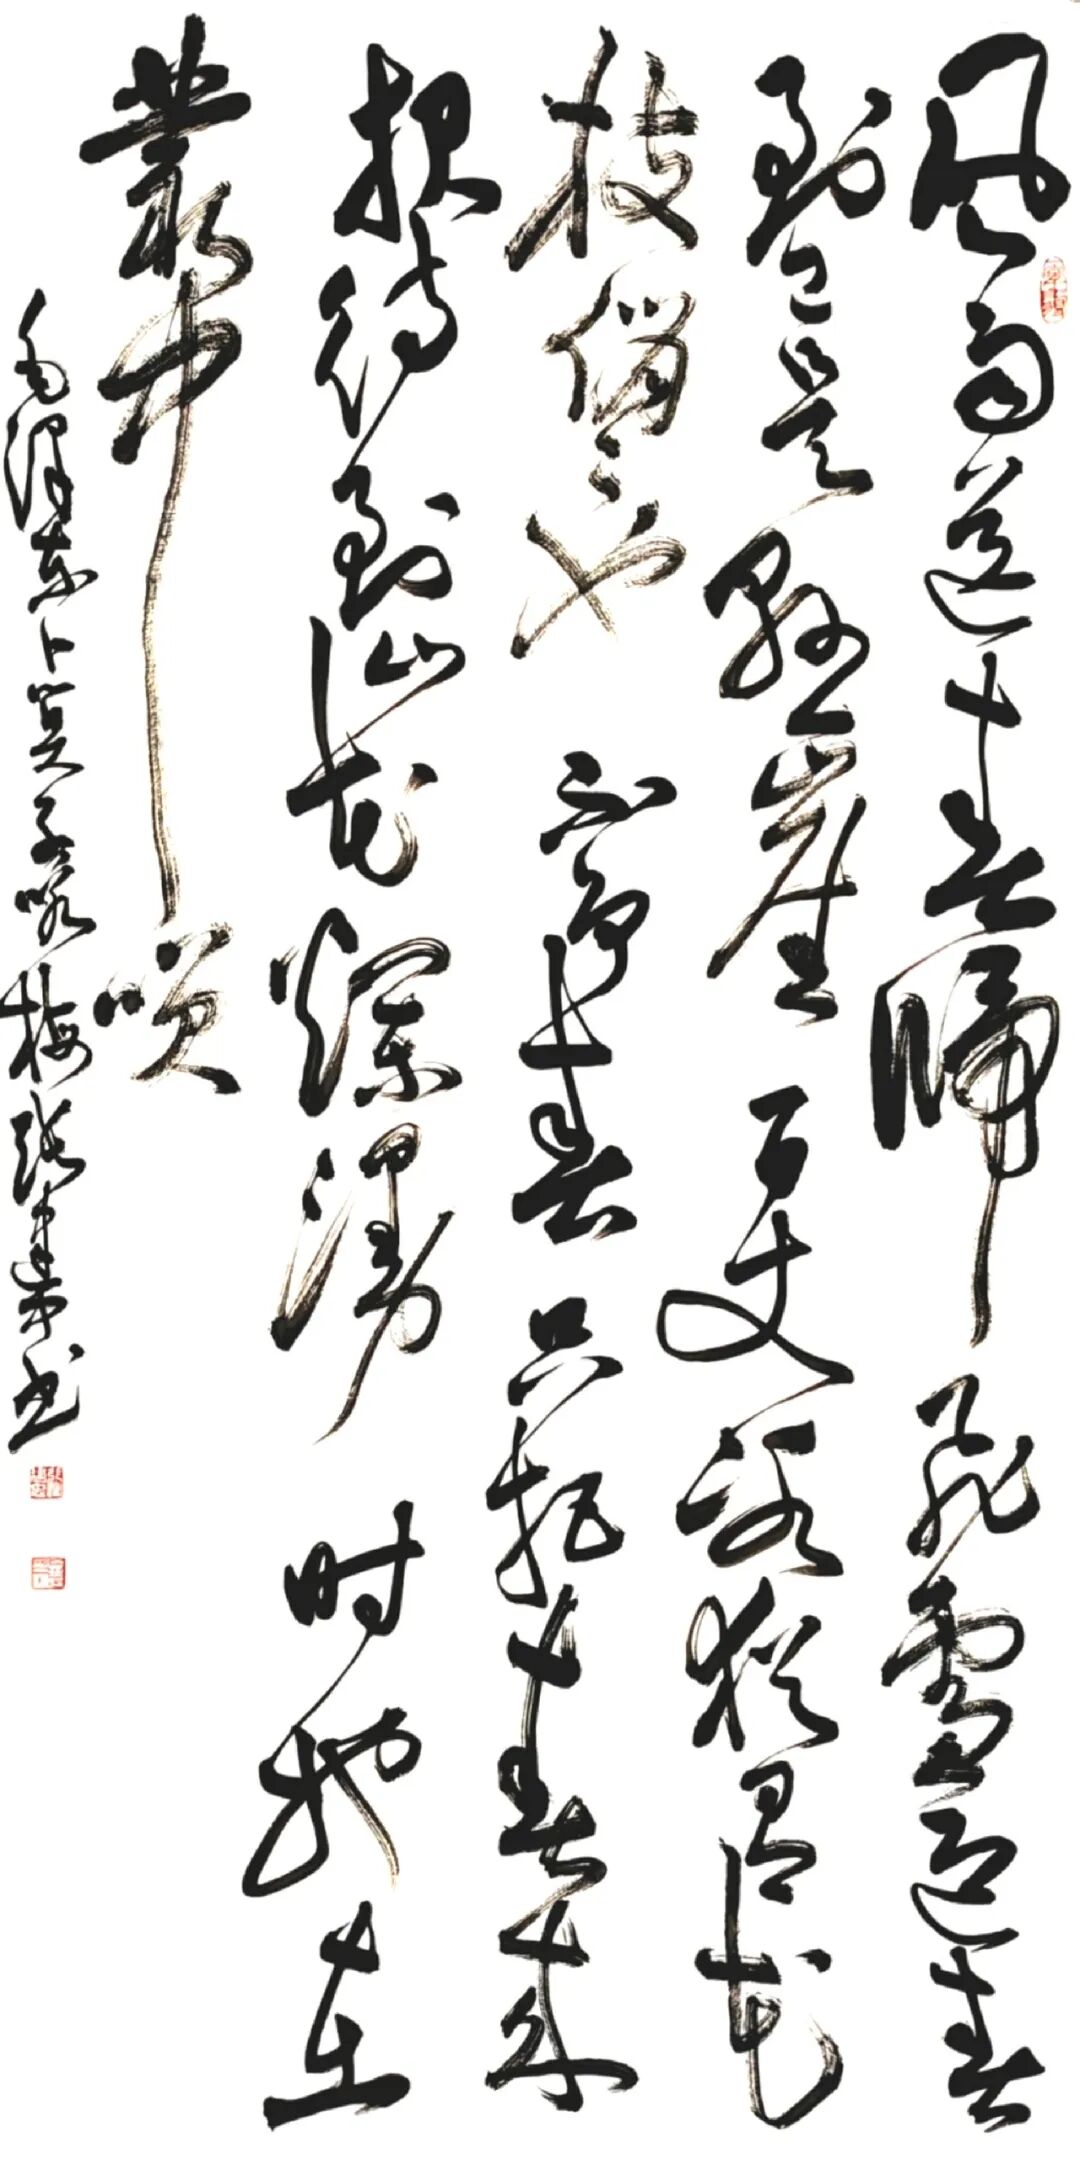 风雨送春歸飞雪迎春
到已是悬崖百丈冰犹有花
枝俏々也不争春只把春来
报待到山花烂漫时她在
叢中笑
毛泽东卜算子咏梅张书